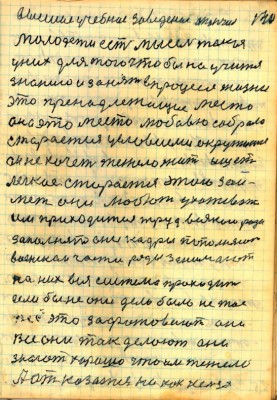 Высшие учебные заведения окончил
Молодежи есть мысли такая
у них для того что бы научится
знанию и занять в процессе жизни
это принадлежащие место
она это место любовью собрала
старается условиями окружится
он не хочет тежело жить ищеть
легкое старается этого зай-
меть они любют ухаживать
им приходится труд всякого рода
заполнять они кадры пополняют
воинския части ряды занимают
на них вся система приходит
если бы не они дело было не так
все это зафотовают они
все они так делают они
знают хорошо что им тежело
А отказатся никак нельзя